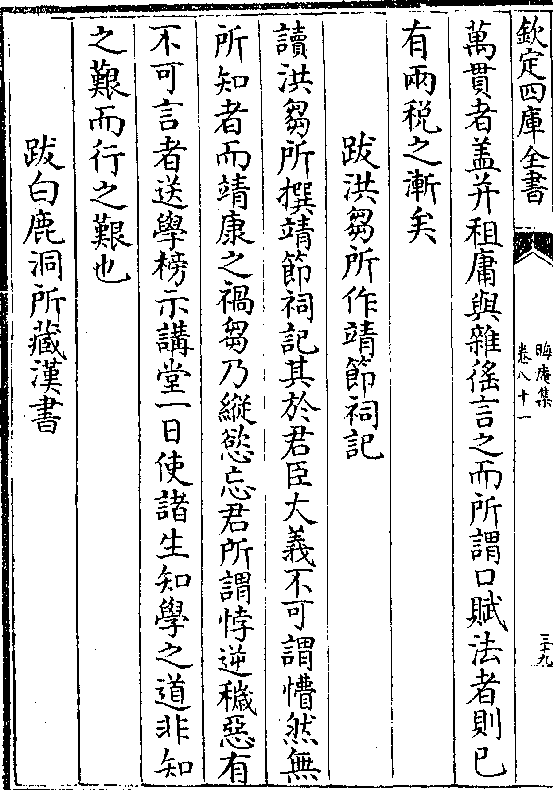 欽定四庫全書
晦庵集
卷八十一
三十九
萬貫者盖并租庸與雜徭言之而所謂口賦法者則已
有兩稅之漸矣
跋洪芻所作靖節祠記
讀洪芻所撰靖節祠記其於君臣大義不可謂懵然無
所知者而靖康之禍芻乃縱慾忘君所謂悖逆穢惡有
不可言者送學榜示講堂一日使諸生知學之道非知
之艱而行之艱也
跋白鹿洞所藏漢書